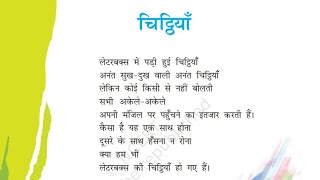 चिट्ठियाँ
लेटरबक्स में पड़ी हुई चिट्ठियाँ
अनंत सुख-दुख वाली अनंत चिट्ठियाँ
लेकिन कोई किसी से नहीं बोलती
सभी अकेले-अकेले
अपनी मंजिल पर पहुँचने का इंतजार करती हैं।
कैसा है यह एक साथ होना
दूसरे के साथ हँसना न रोना
क्या हम भी
लेटरबक्स की चिट्ठियाँ हो गए हैं।